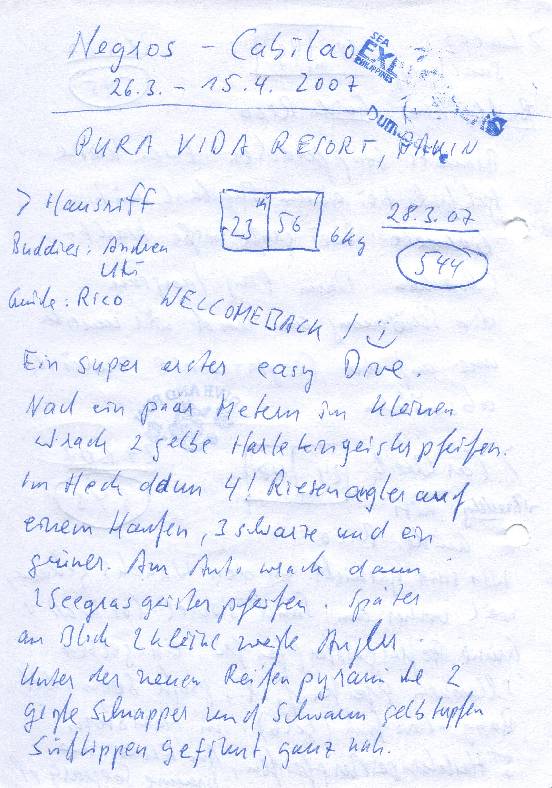 Negros - Cabilao
26.3. - 15.4. 2007
SEA
EXPLORERS
PHILIPPINES
PURA VIDA RESORT, DAUIN
> Hausriff
23 56 6kg
28.3.07
Buddies: Andrea
544
Guide: Rico WELLCOMEBACK !
Ein super erster easy Dive.
Nach ein paar Metern im kleinen
wrack 2 gelbe Harlekingeisterpfeifen.
Im Heck dann 4! Riesenangler auf
einem Haufen, 3 schwarze und ein
grüner. Am Autowrack dann
2 Seegrasgeisterpfeifen. Später
am Block 2 kleine weiße Angler.
Unter der neuen Reifenpyramide 2
große Schnapper und Schwarm gelbtupfen
Süßlippen gefilmt, ganz nah.